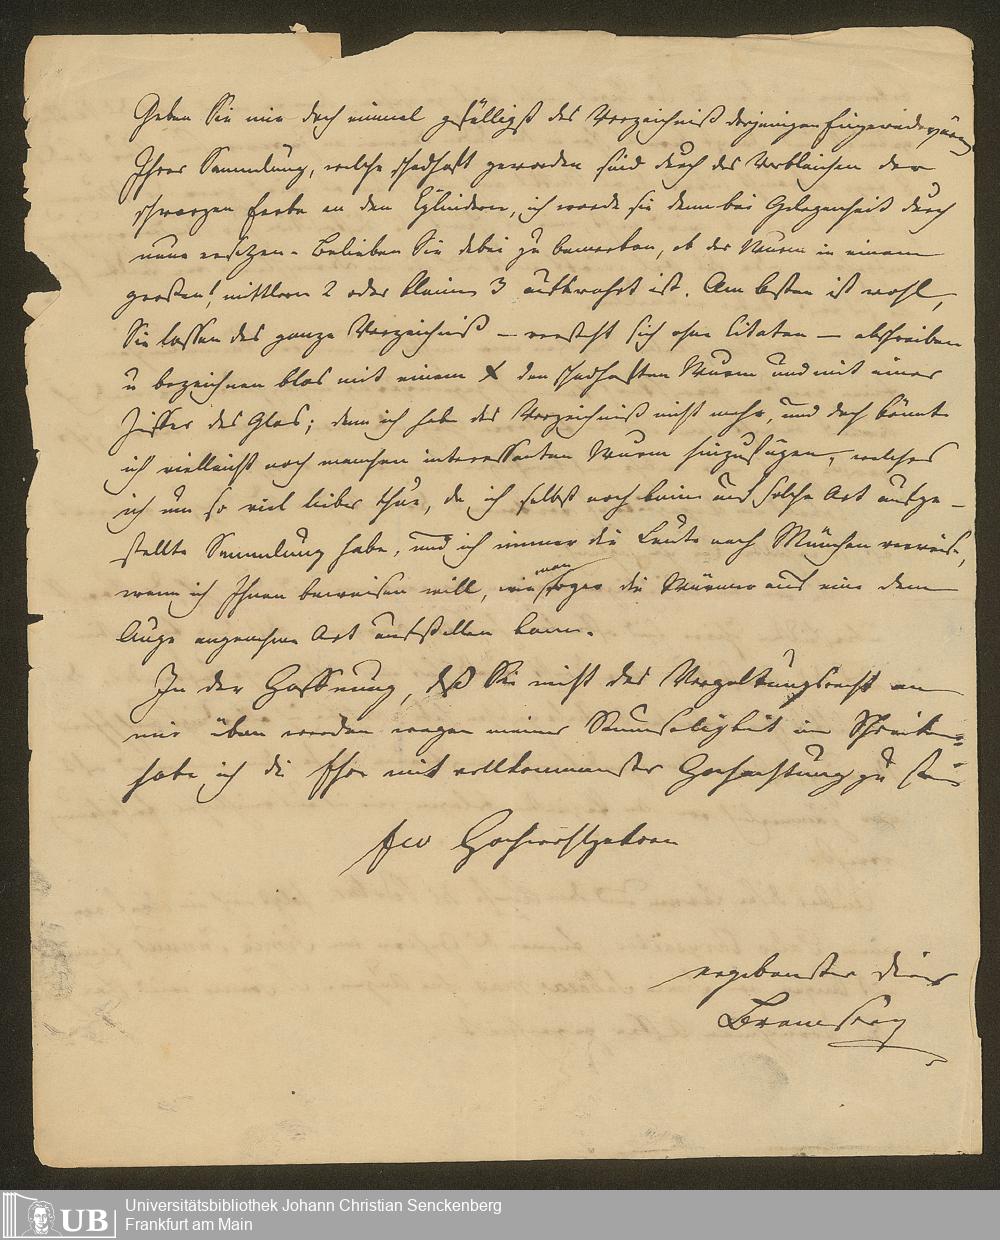 Geben Sie mir doch einmal gefälligst das Verzeichniß derjenigen Eingeweidewürmer
Ihrer Sammlung, welche schadhaft geworden sind durch das Verbleichen der
schwarzen Farbe an den Cylindern, ich werde sie dann bei Gelegenheit durch
neue ersetzen. Belieben Sie dabei zu bemerken, ob der Wurm in einem
großen 1 mittlern 2 oder kleinen 3 aufbewahrt ist. Am besten ist wohl,
Sie lassen das ganze Verzeichniß – versteht sich ohne Citaten – abschreiben
u bezeichnen blos mit einem X den schadhaften Wurm und mit einer
Ziffer das Glas; denn ich habe das Verzeichniß nicht mehr, und doch könnte
ich vielleicht noch manchen interessanten Wurm hinzufügen, welches
ich um so viel lieber thue, da ich selbst noch keine auf solche Art aufge-
stellte Sammlung habe, und ich immer die Leute nach München verweise,
wenn ich Ihnen beweisen will, wie man sogar die Würmer auf eine dem
Auge angenehme Art aufstellen kann.
In der Hoffnung, daß Sie nicht das Vergeltungsrecht an
mir üben werden wegen meiner Saumseligkeit im Schreiben
habe ich die Ehre mit vollkommenster Hochachtung zu sein
Euer Hochwohlgeboren
ergebenster Diener
Bremser
UB
Universitätsbibliothek Johann Christian Senckenberg
Frankfurt am Main